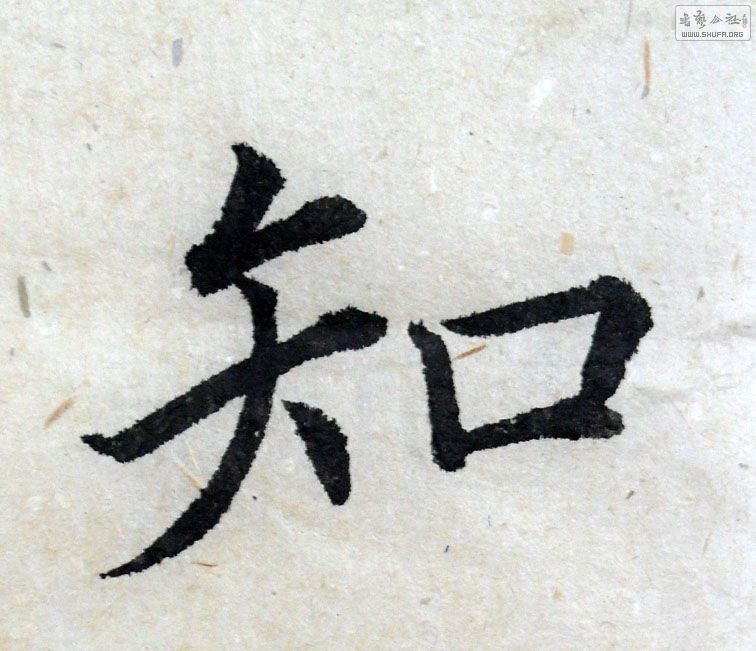 书艺公社
WWW.SHUFA.ORG
知